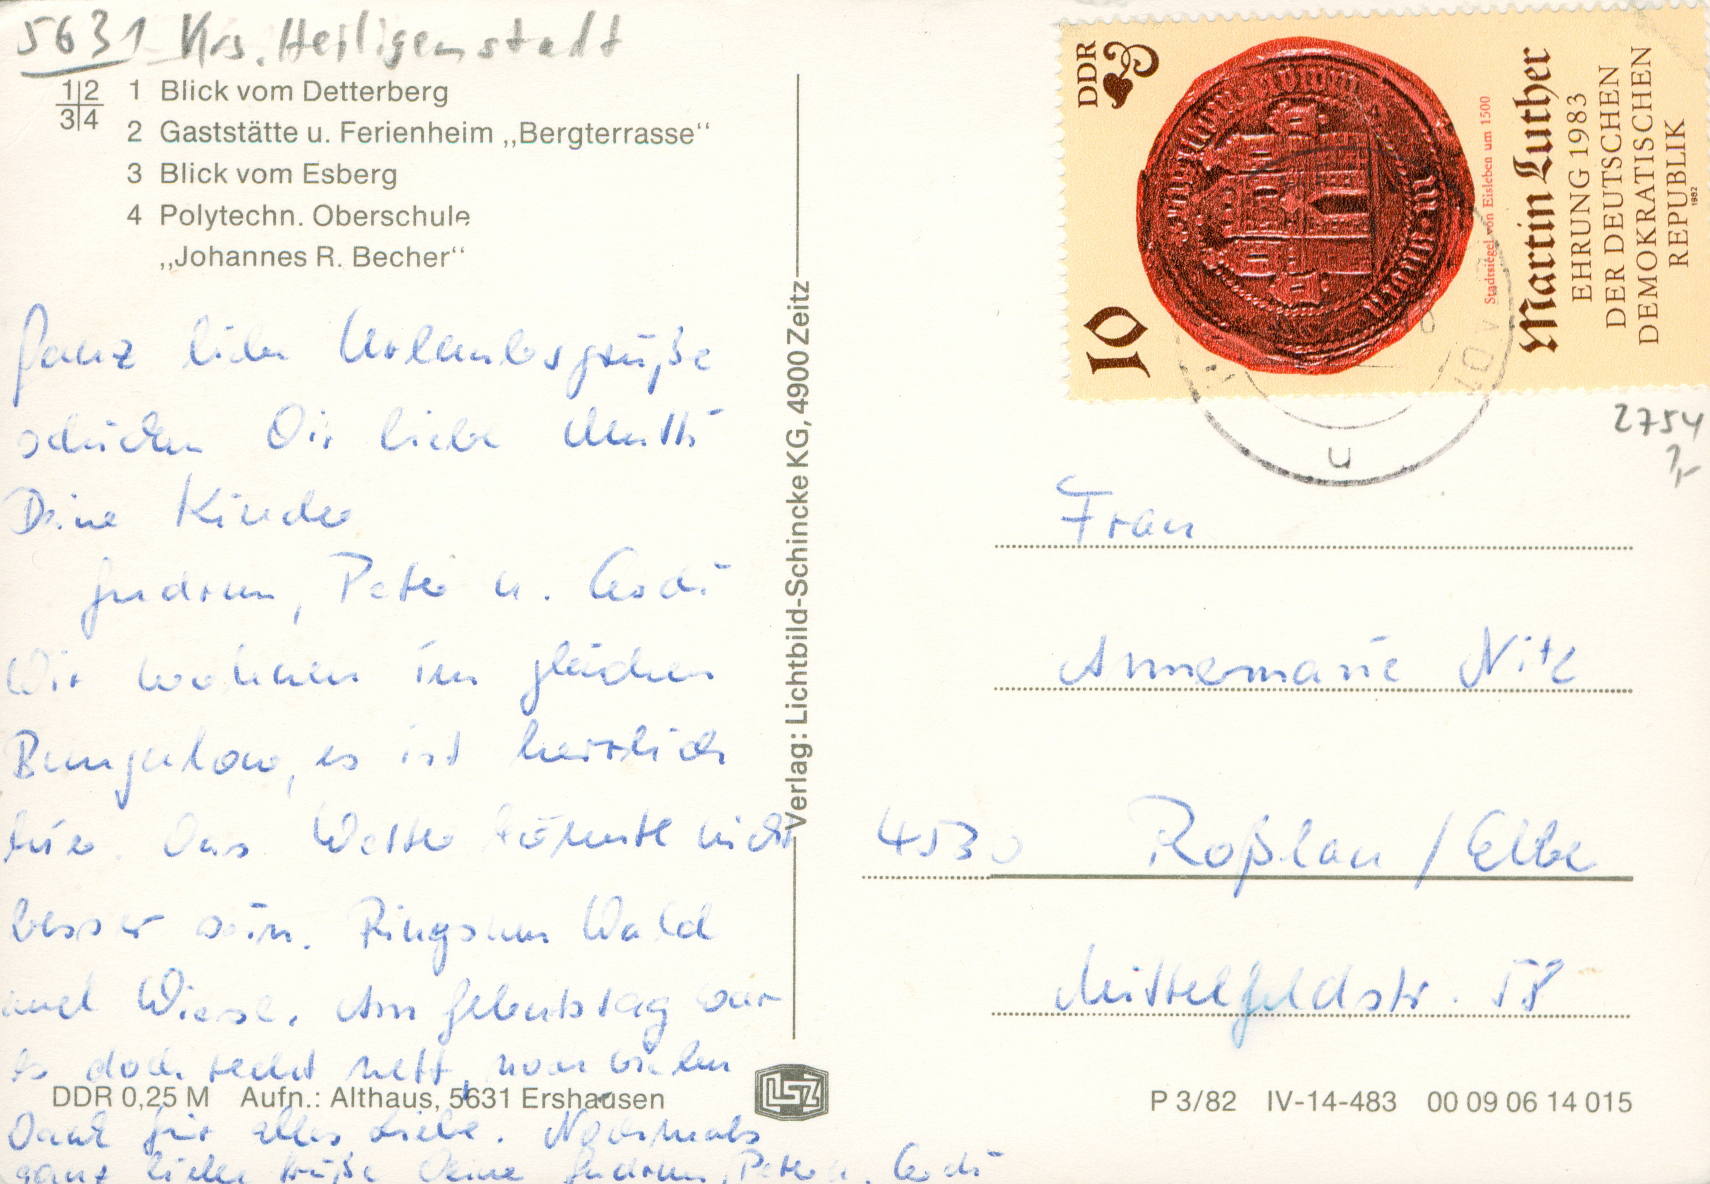 5631 Krs. Heiligenstadt
1 2
3 4
1 Blick vom Detterberg
2 Gaststätte u. Ferienheim „Bergterrasse“
3 Blick vom Esberg
4 Polytechn. Oberschule
„Johannes R. Becher“
Ganz liebe Urlaubsgrüße
schicken Dir liebe Mutti
Deine Kinder
Gudrun, Peter u.
Wir wohnen im gleichen
Bungalow, es ist herrlich
hier. Das Wetter könnte nicht
besser sein. Ringsum Wald
und Wiese. Am Geburtstag war
es doch recht nett, nun vielen
Dank für alles Liebe. Nochmals
ganz liebe Grüße Deine Gudrun, Peter u.
DDR 0,25 M Aufn.: Althaus, 5631 Ershausen
Verlag: Lichtbild-Schincke KG, 4900 Zeitz
LSZ
DDR
10
Stadtsiegel von Eisleben um 1500
Martin Luther
EHRUNG 1983
DER DEUTSCHEN
DEMOKRATISCHEN
REPUBLIK
1982
u
2754
Frau
Annemarie Nitz
4530 Roßlau / Elbe
Mittelfeldstr. 58
P 3/82 IV-14-483 00 09 06 14 015